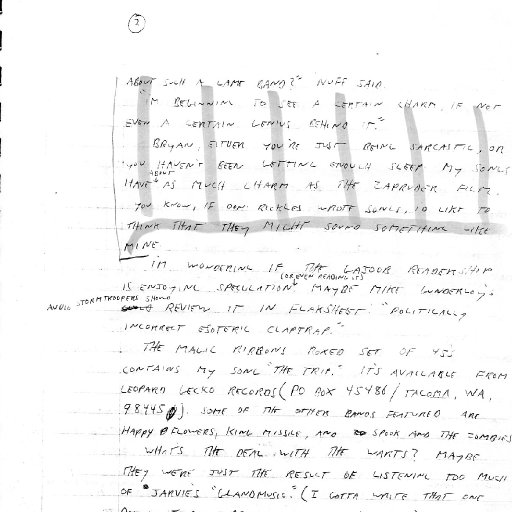 2
ABOUT SUCH A LAME BAND?" NUFF SAID.
"I'M BEGINNING TO SEE A CERTAIN CHARM, IF NOT
EVEN A CERTAIN GENIUS BEHIND IT."
BRYAN, EITHER YOU'RE JUST BEING SARCASTIC, OR
YOU HAVEN'T BEEN GETTING ENOUGH SLEEP. MY SONGS
HAVE ABOUT AS MUCH CHARM AS THE ZAPRUDER FILM.
YOU KNOW, IF DON RICKLES WROTE SONGS, I'D LIKE TO
THINK THAT THEY MIGHT SOUND SOMETHING LIKE
MINE.
I'M WONDERING IF THE READERSHIP
(OR EVEN READING IT)
IS ENJOYING SPECULATION. MAYBE MIKE GUNDERLOY'S
AUDIO STORMTROOPERS SHOULD
REVIEW IT IN "POLITICALLY
INCORRECT ESOTERIC CLAPTRAP."
THE MAGIC RIBBONS BOXED SET OF 45'S
CONTAINS MY SONG "THE TRIP." IT'S AVAILABLE FROM
LEOPARD GECKO RECORDS (PO BOX 45486 / TACOMA, WA,
98445). SOME OF THE OTHER BANDS FEATURED ARE
HAPPY FLOWERS, KING MISSILE, AND SPOOK AND THE ZOMBIES
WHAT'S THE DEAL WITH THE WARTS? MAYBE
THEY WERE JUST THE RESULT OF LISTENING TOO MUCH
OF JARVIE'S "GLANDMUSIC." (I GOTTA WRITE THAT ONE